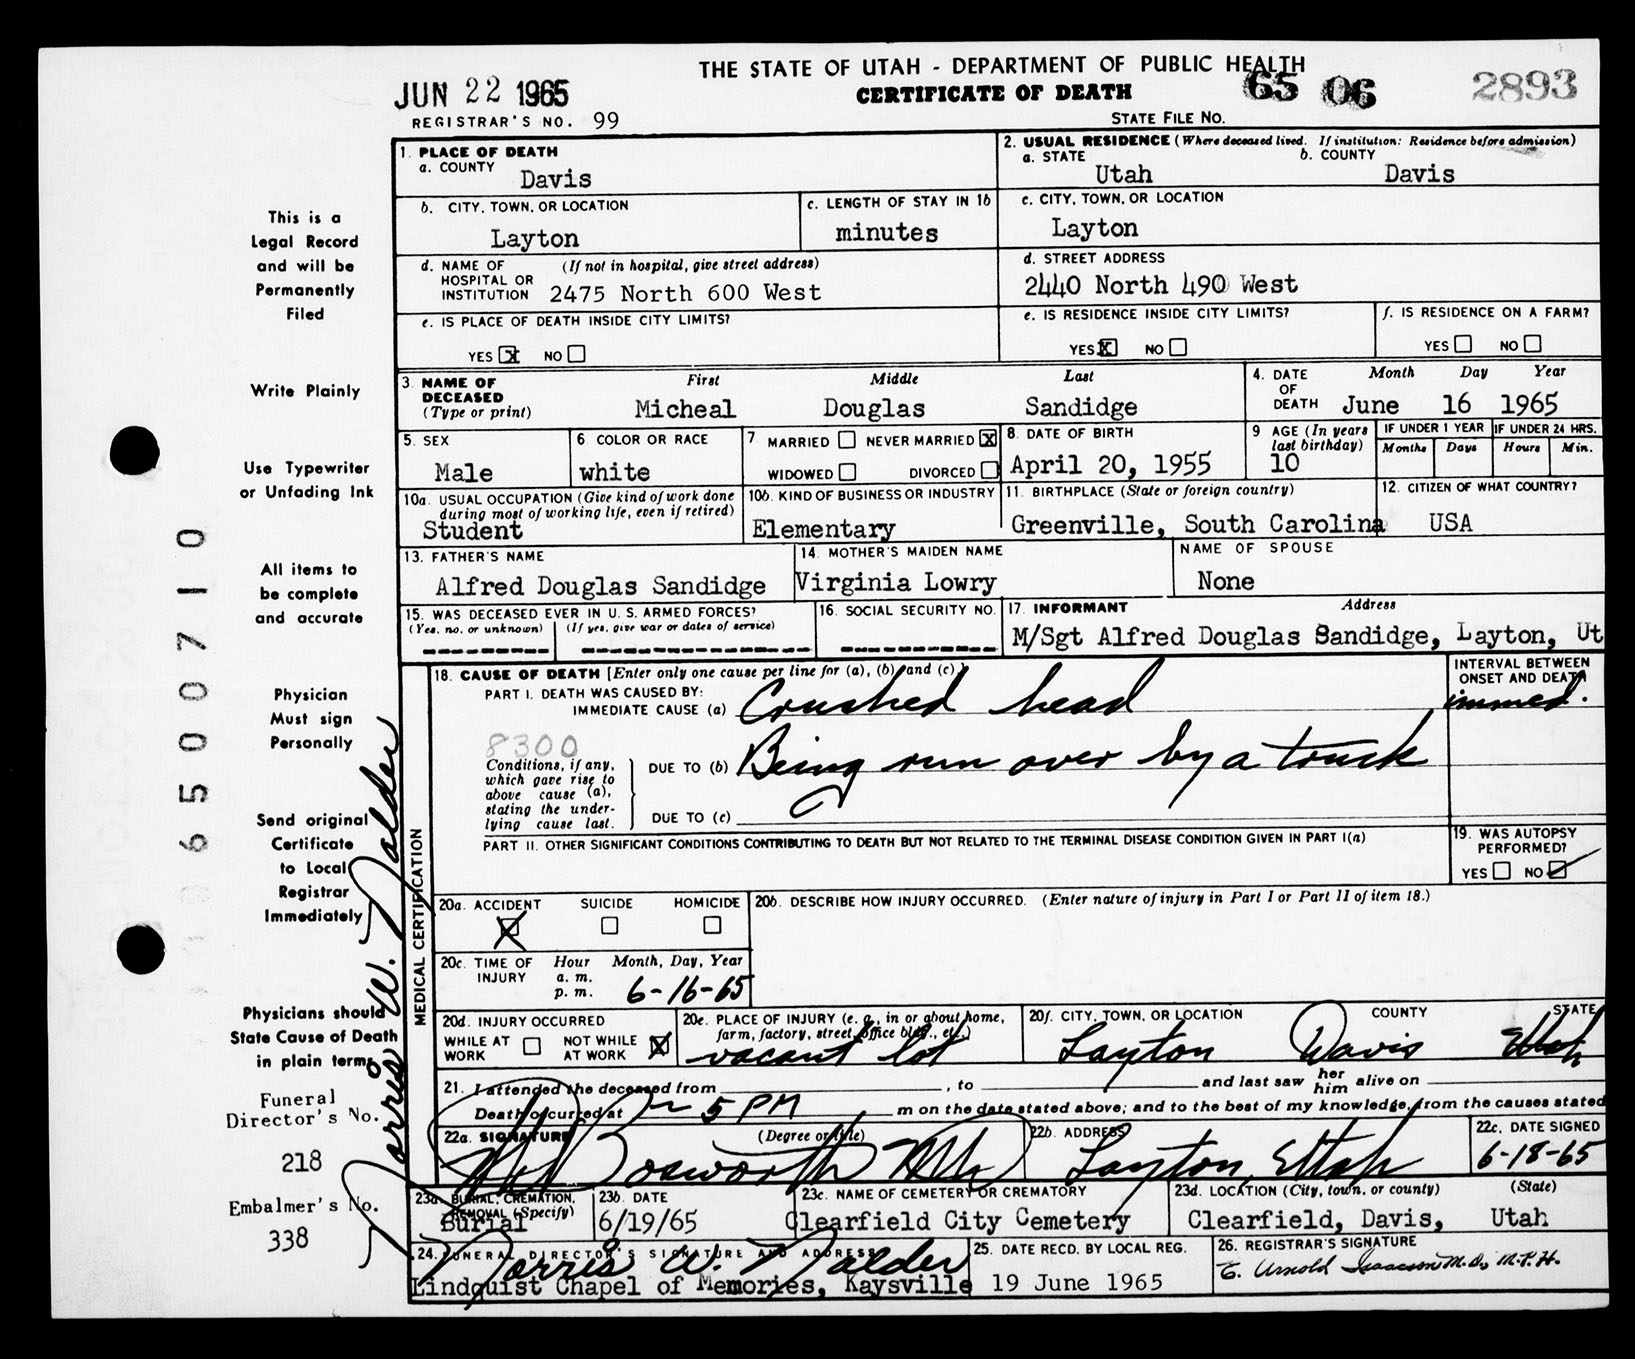 THE STATE OF UTAH - DEPARTMENT OF PUBLIC HEALTH
CERTIFICATE OF DEATH
65 06 2893
JUN 22 1965
REGISTRAR'S NO. 99
STATE FILE NO.
This is a
Legal Record
and will be
Permanently
Filed
Write Plainly
Use Typewriter
or Unfading Ink
All items to
be complete
and accurate
Physician
Must sign
Personally
Send original
Certificate
to Local
Registrar
Immediately
Physicians should
State Cause of Death
in plain terms
Funeral
Director's No.
218
Embalmer's No.
338
65 00710
Norris W. Nalder
1. PLACE OF DEATH
a. COUNTY
Davis
2. USUAL RESIDENCE (Where deceased lived. If institution: Residence before admission)
a. STATE b. COUNTY
Utah Davis
b. CITY, TOWN, OR LOCATION
Layton
c. LENGTH OF STAY IN 1b
minutes
c. CITY, TOWN, OR LOCATION
Layton
d. NAME OF (If not in hospital, give street address)
HOSPITAL OR
INSTITUTION 2475 North 600 West
d. STREET ADDRESS
2440 North 490 West
e. IS PLACE OF DEATH INSIDE CITY LIMITS?
YES X NO
e. IS RESIDENCE INSIDE CITY LIMITS?
YES X NO
f. IS RESIDENCE ON A FARM?
YES NO
3. NAME OF DECEASED (Type or print)
First Middle Last
Micheal Douglas Sandidge
4. DATE OF DEATH
Month Day Year
June 16 1965
5. SEX
Male
6 COLOR OR RACE
white
7 MARRIED NEVER MARRIED X
WIDOWED DIVORCED
8. DATE OF BIRTH
April 20, 1955
9 AGE (In years last birthday)
10
IF UNDER 1 YEAR
Months Days
IF UNDER 24 HRS.
Hours Min.
10a. USUAL OCCUPATION (Give kind of work done
during most of working life, even if retired)
Student
10b. KIND OF BUSINESS OR INDUSTRY
Elementary
11. BIRTHPLACE (State or foreign country)
Greenville, South Carolina
12. CITIZEN OF WHAT COUNTRY?
USA
13. FATHER'S NAME
Alfred Douglas Sandidge
14. MOTHER'S MAIDEN NAME
Virginia Lowry
NAME OF SPOUSE
None
15. WAS DECEASED EVER IN U. S. ARMED FORCES?
(Yes, no, or unknown) (If yes, give war or dates of service)
16. SOCIAL SECURITY NO.
17. INFORMANT Address
M/Sgt Alfred Douglas Sandidge, Layton, Ut
MEDICAL CERTIFICATION
18. CAUSE OF DEATH [Enter only one cause per line for (a), (b) and (c).]
PART I. DEATH WAS CAUSED BY:
IMMEDIATE CAUSE (a) Crushed head
INTERVAL BETWEEN
ONSET AND DEATH
immed.
8300
Conditions, if any,
which gave rise to
above cause (a),
stating the under-
lying cause last.
DUE TO (b) Being run over by a truck
DUE TO (c)
PART II. OTHER SIGNIFICANT CONDITIONS CONTRIBUTING TO DEATH BUT NOT RELATED TO THE TERMINAL DISEASE CONDITION GIVEN IN PART I(a)
19. WAS AUTOPSY
PERFORMED?
YES NO
20a. ACCIDENT SUICIDE HOMICIDE
X
20b. DESCRIBE HOW INJURY OCCURRED. (Enter nature of injury in Part I or Part II of item 18.)
20c. TIME OF INJURY
Hour Month, Day, Year
a. m.
p. m. 6-16-65
20d. INJURY OCCURRED
WHILE AT WORK NOT WHILE AT WORK X
20e. PLACE OF INJURY (e. g., in or about home,
farm, factory, street, office bldg., etc.)
vacant lot
20f. CITY, TOWN, OR LOCATION COUNTY STATE
Layton Davis Utah
21. I attended the deceased from , to and last saw her him alive on
Death occurred at 5 PM m on the date stated above; and to the best of my knowledge, from the causes stated
22a. SIGNATURE (Degree or title)
Bosworth MD
22b. ADDRESS
Layton, Utah
22c. DATE SIGNED
6-18-65
23a. BURIAL, CREMATION, REMOVAL (Specify)
Burial
23b. DATE
6/19/65
23c. NAME OF CEMETERY OR CREMATORY
Clearfield City Cemetery
23d. LOCATION (City, town, or county) (State)
Clearfield, Davis, Utah
24. FUNERAL DIRECTOR'S SIGNATURE AND ADDRESS
Norris W. Nalder
Lindquist Chapel of Memories, Kaysville
25. DATE RECD. BY LOCAL REG.
19 June 1965
26. REGISTRAR'S SIGNATURE
E. Arnold Isaacson M.D., M.P.H.